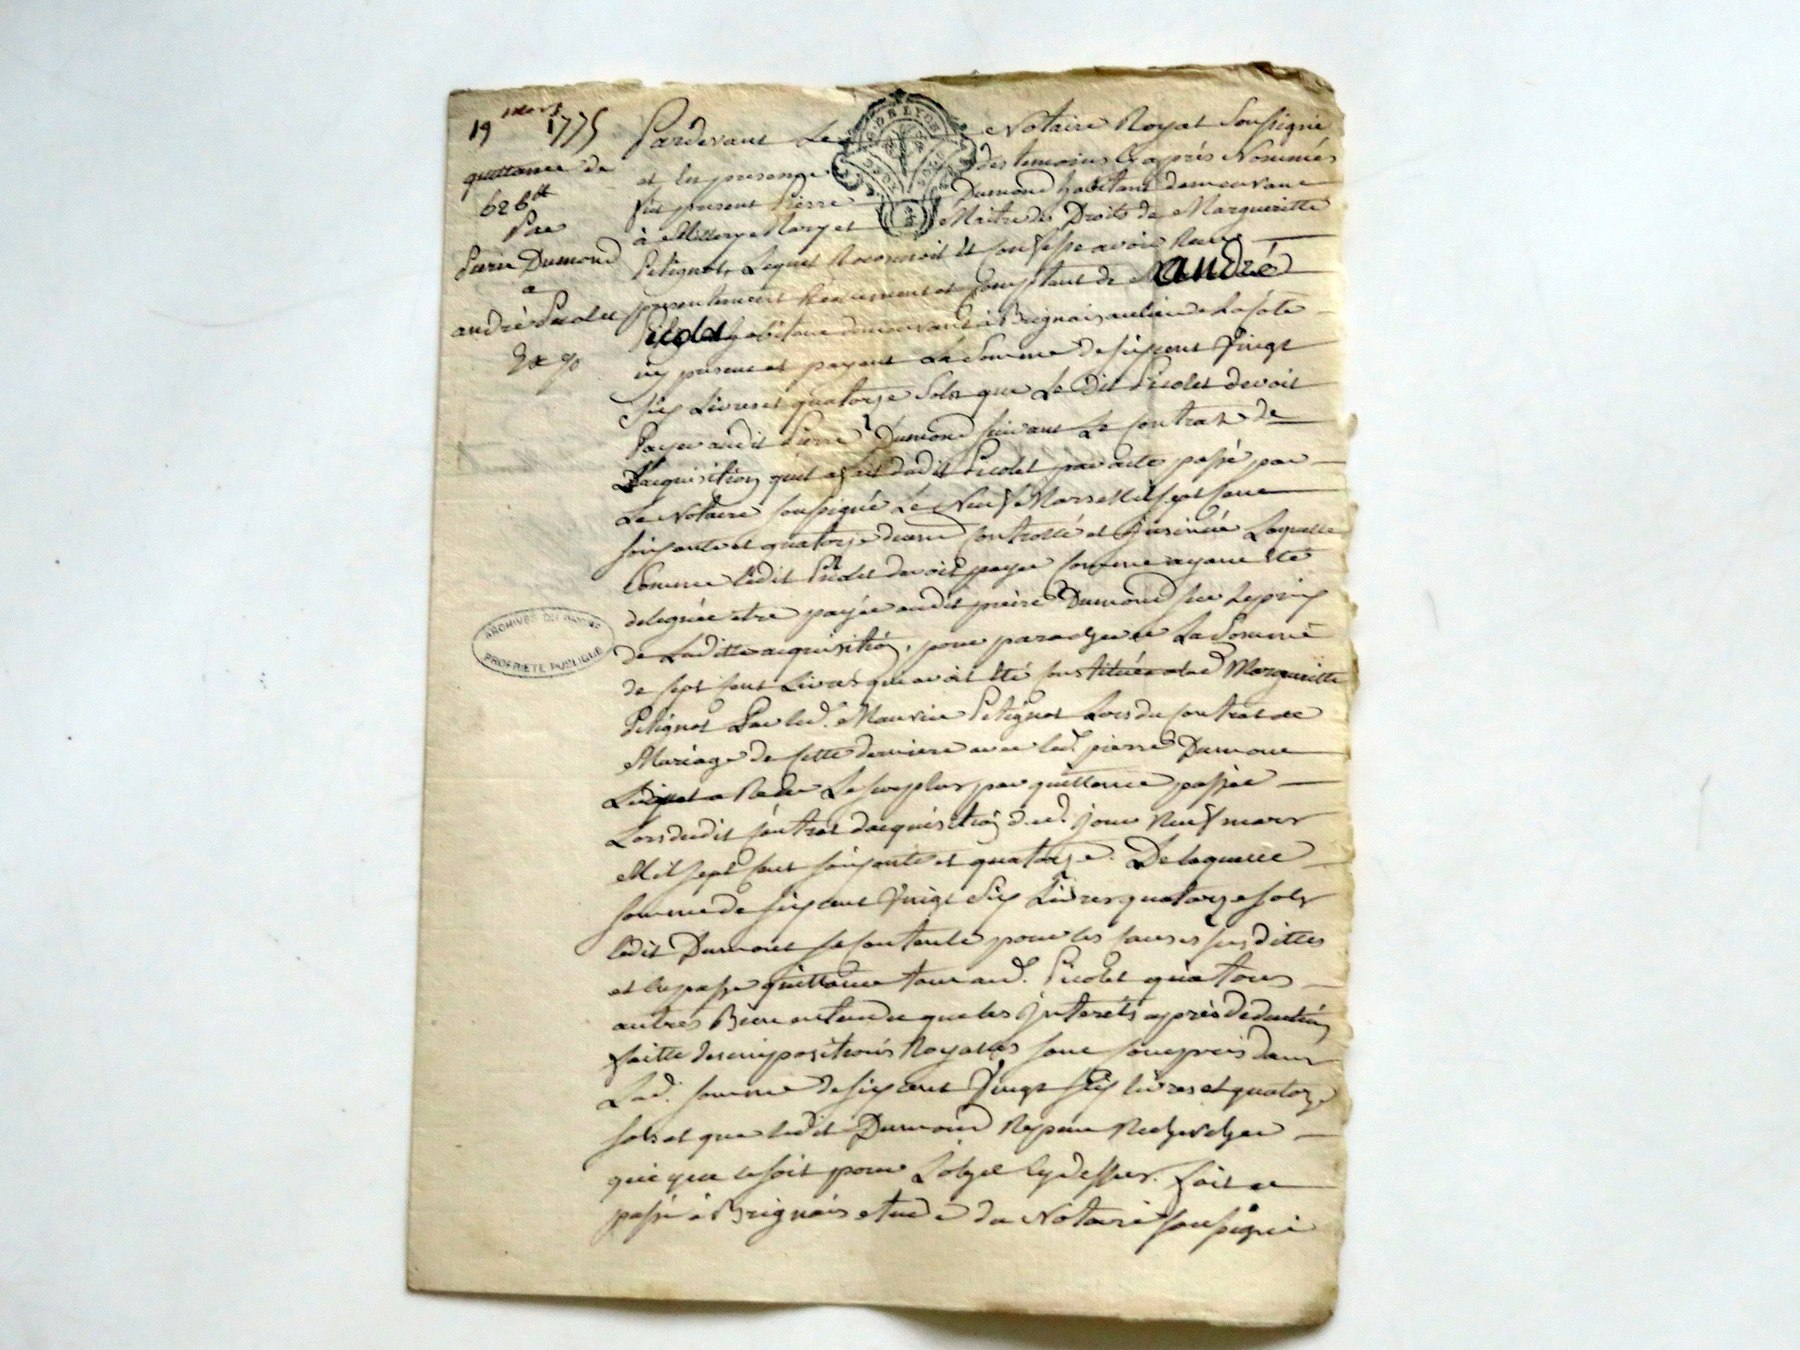 19 mars 1775
quittance de
626 ₶
Par
Pierre Dumond
a
andré Picolet
Pardevant Le Notaire Royal Soussigné
et En presence des temoins Cy après Nommés
fut present Pierre Dumond habitant demeurant
à Millery Mary et Maitre des Droits de Margueritte
Petignot, Lequel Reconnoit Et Confesse avoir Reçu
presentement Reellement et Comptant de andré
Picolet habitant demeurant à Brignais au lieu de La Cote
icy present et payant La Somme de six cent Vingt
six Livres et quatorze Sols que Le dit Picolet devoit
Payer audit Pierre Dumond suivant Le Contrat de
L'acquisition quil a fait dudit Picolet par acte passé par
Le Notaire soussigné Le Neuf Mars Mil sept Cent
soixante et quatorze duement Controllé et insinué Laquelle
Somme ledit Picolet devoit payer Comme ayant Eté
deleguée etre payée audit pierre Dumond sur Le prix
de Laditte acquisition, pour parachever La Somme
de sept Cent Livres qui avoit Eté Constituée a Margueritte
Petignot Par led. Maurice Petignot Lors du Contrat de
Mariage de Cette derniere avec led. pierre Dumont
Lequel a Reçu Le surplus par quittance passée
Lors dudit Contrat dacquisition dud. jour Neuf mars
Mil sept Cent soixante et quatorze. De laquelle
somme de six cent Vingt Six Livres quatorze sols
ledit Dumont se Contente pour les Causes susdittes
et En passe quittance tant aud. Picolet qu'a tous
autres Bien entendu que les Interets après deduction
faitte des impositions Royales sont Compris dans
Lad. somme de six cent Vingt Six livres et quatorze
sols et que ledit Dumond Ne peut Rechercher
qui que ce soit pour L'objet Cy dessus. fait et
passé à Brignais etude du Notaire soussigné
ARCHIVES DU RHONE
PROPRIETE PUBLIQUE